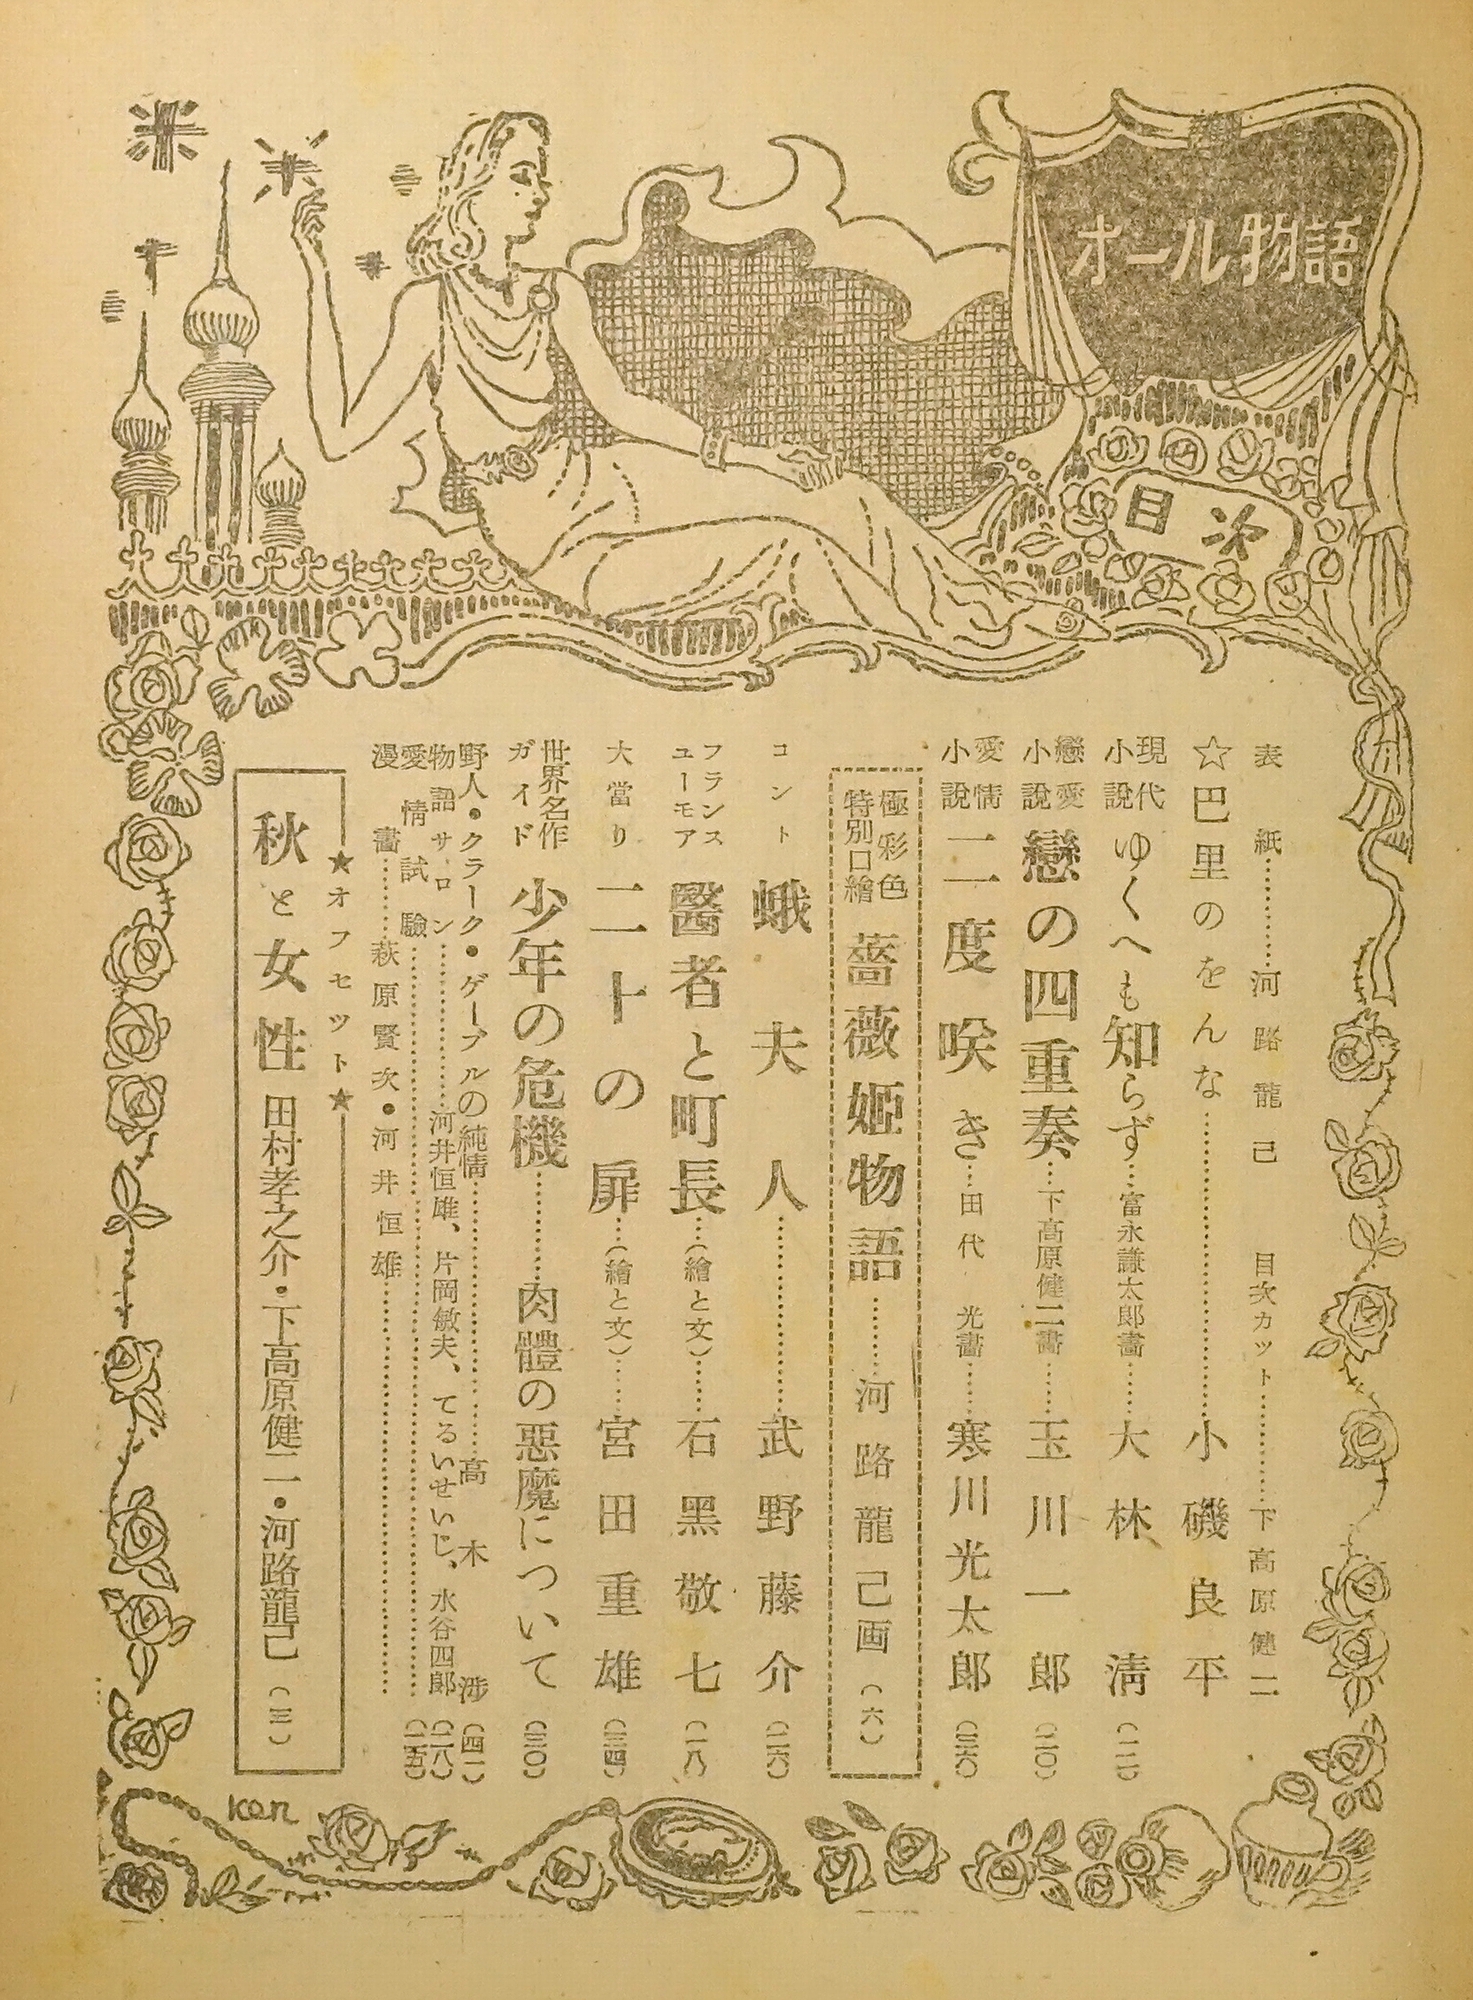 オール物語
目次
表紙……………河路龍己　目次カット……………下高原健二
☆巴里のをんな……………小磯良平
現代小說　ゆくへも知らず…富永謙太郎畫……大林淸（一二）
戀愛小說　戀の四重奏…下高原健二畫……玉川一郎（二〇）
愛情小說　二度咲き…田代光畫……寒川光太郎（三六）
極彩色特別口繪　薔薇姬物語……河路龍己画（六）
コント　蛾夫人……………武野藤介（二六）
フランスユーモア　醫者と町長…（繪と文）……石黑敬七（一八）
大當り　二十の扉…（繪と文）……宮田重雄（三四）
世界名作ガイド　少年の危機……………肉體の惡魔について（三〇）
野人・クラーク・ゲーブルの純情……………高木渉（四一）
物語サロン……………河井恒雄、片岡敏夫、てるいせいじ、水谷四郞（二八）
愛情試驗……………（一五）
漫畫……………萩原賢次・河井恒雄……………
★オフセツト★
秋と女性　田村孝之介・下高原健二・河路龍己（三）
ken